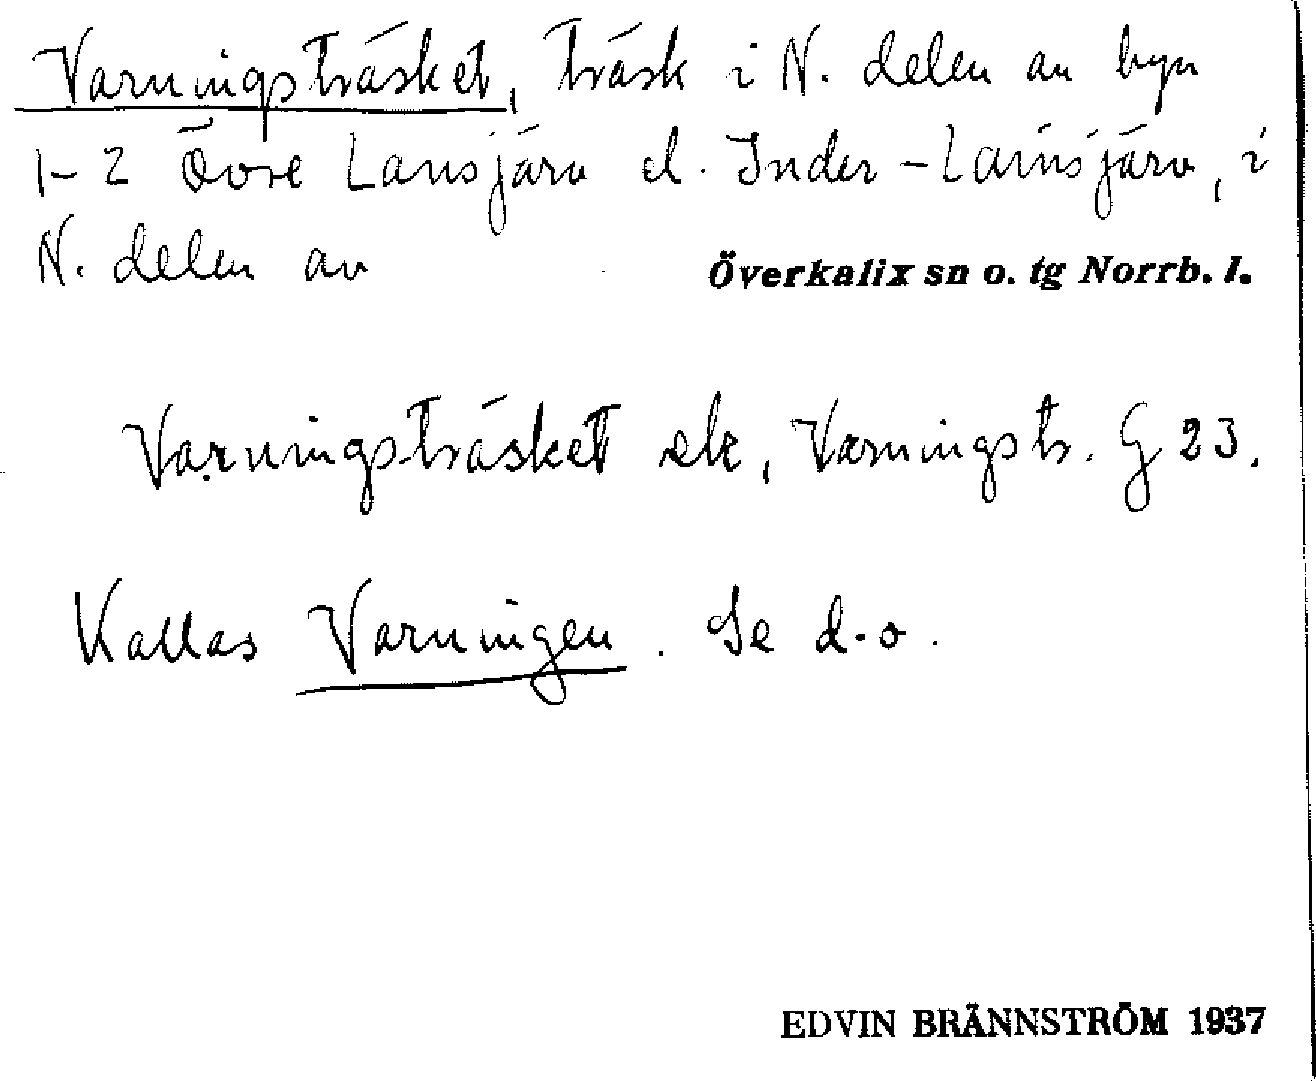 Varningsträsket, träsk i N. delen av byn
1-2 Övre Lansjärv el. Inder-Lainsjärv, i
N. delen av Överkalix sn o. tg Norrb. l.
Varningsträsket ek, Varningstr. G 23.
Kallas Varningen. Se d.o.
EDVIN BRÄNNSTRÖM 1937